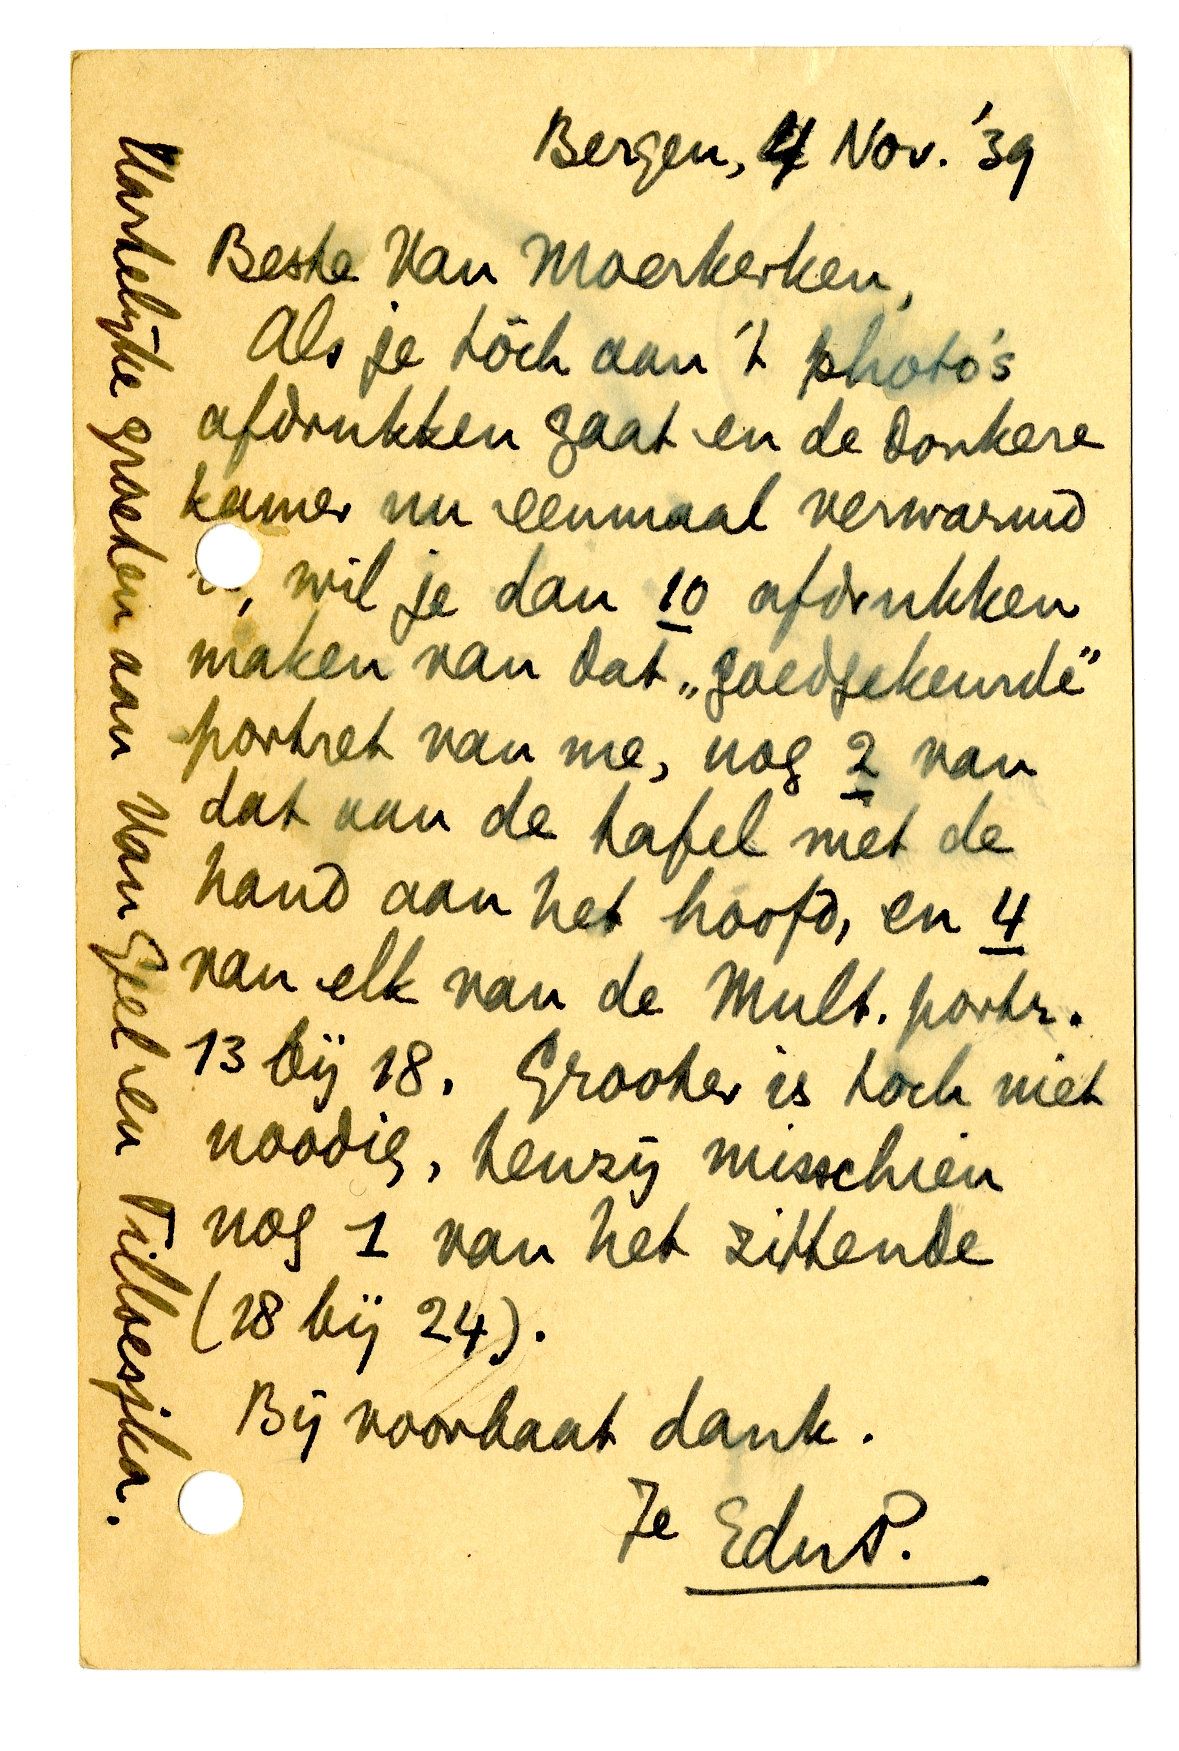 Bergen, 4 Nov. '39
Beste Van Moerkerken,
Als je tòch aan 't photo's
afdrukken gaat en de donkere
kamer nu eenmaal verwarmd
is, wil je dan 10 afdrukken
maken van dat „goedgekeurde"
portret van me, nog 2 van
dat aan de tafel met de
hand aan het hoofd, en 4
van elk van de Mult. portr.
13 bij 18. Grooter is toch niet
noodig, tenzij misschien
nog 1 van het zittende
(18 bij 24).
Bij voorbaat dank.
Je EduP.
Hartelijke groeten aan Van Geel en Tilbesjka.